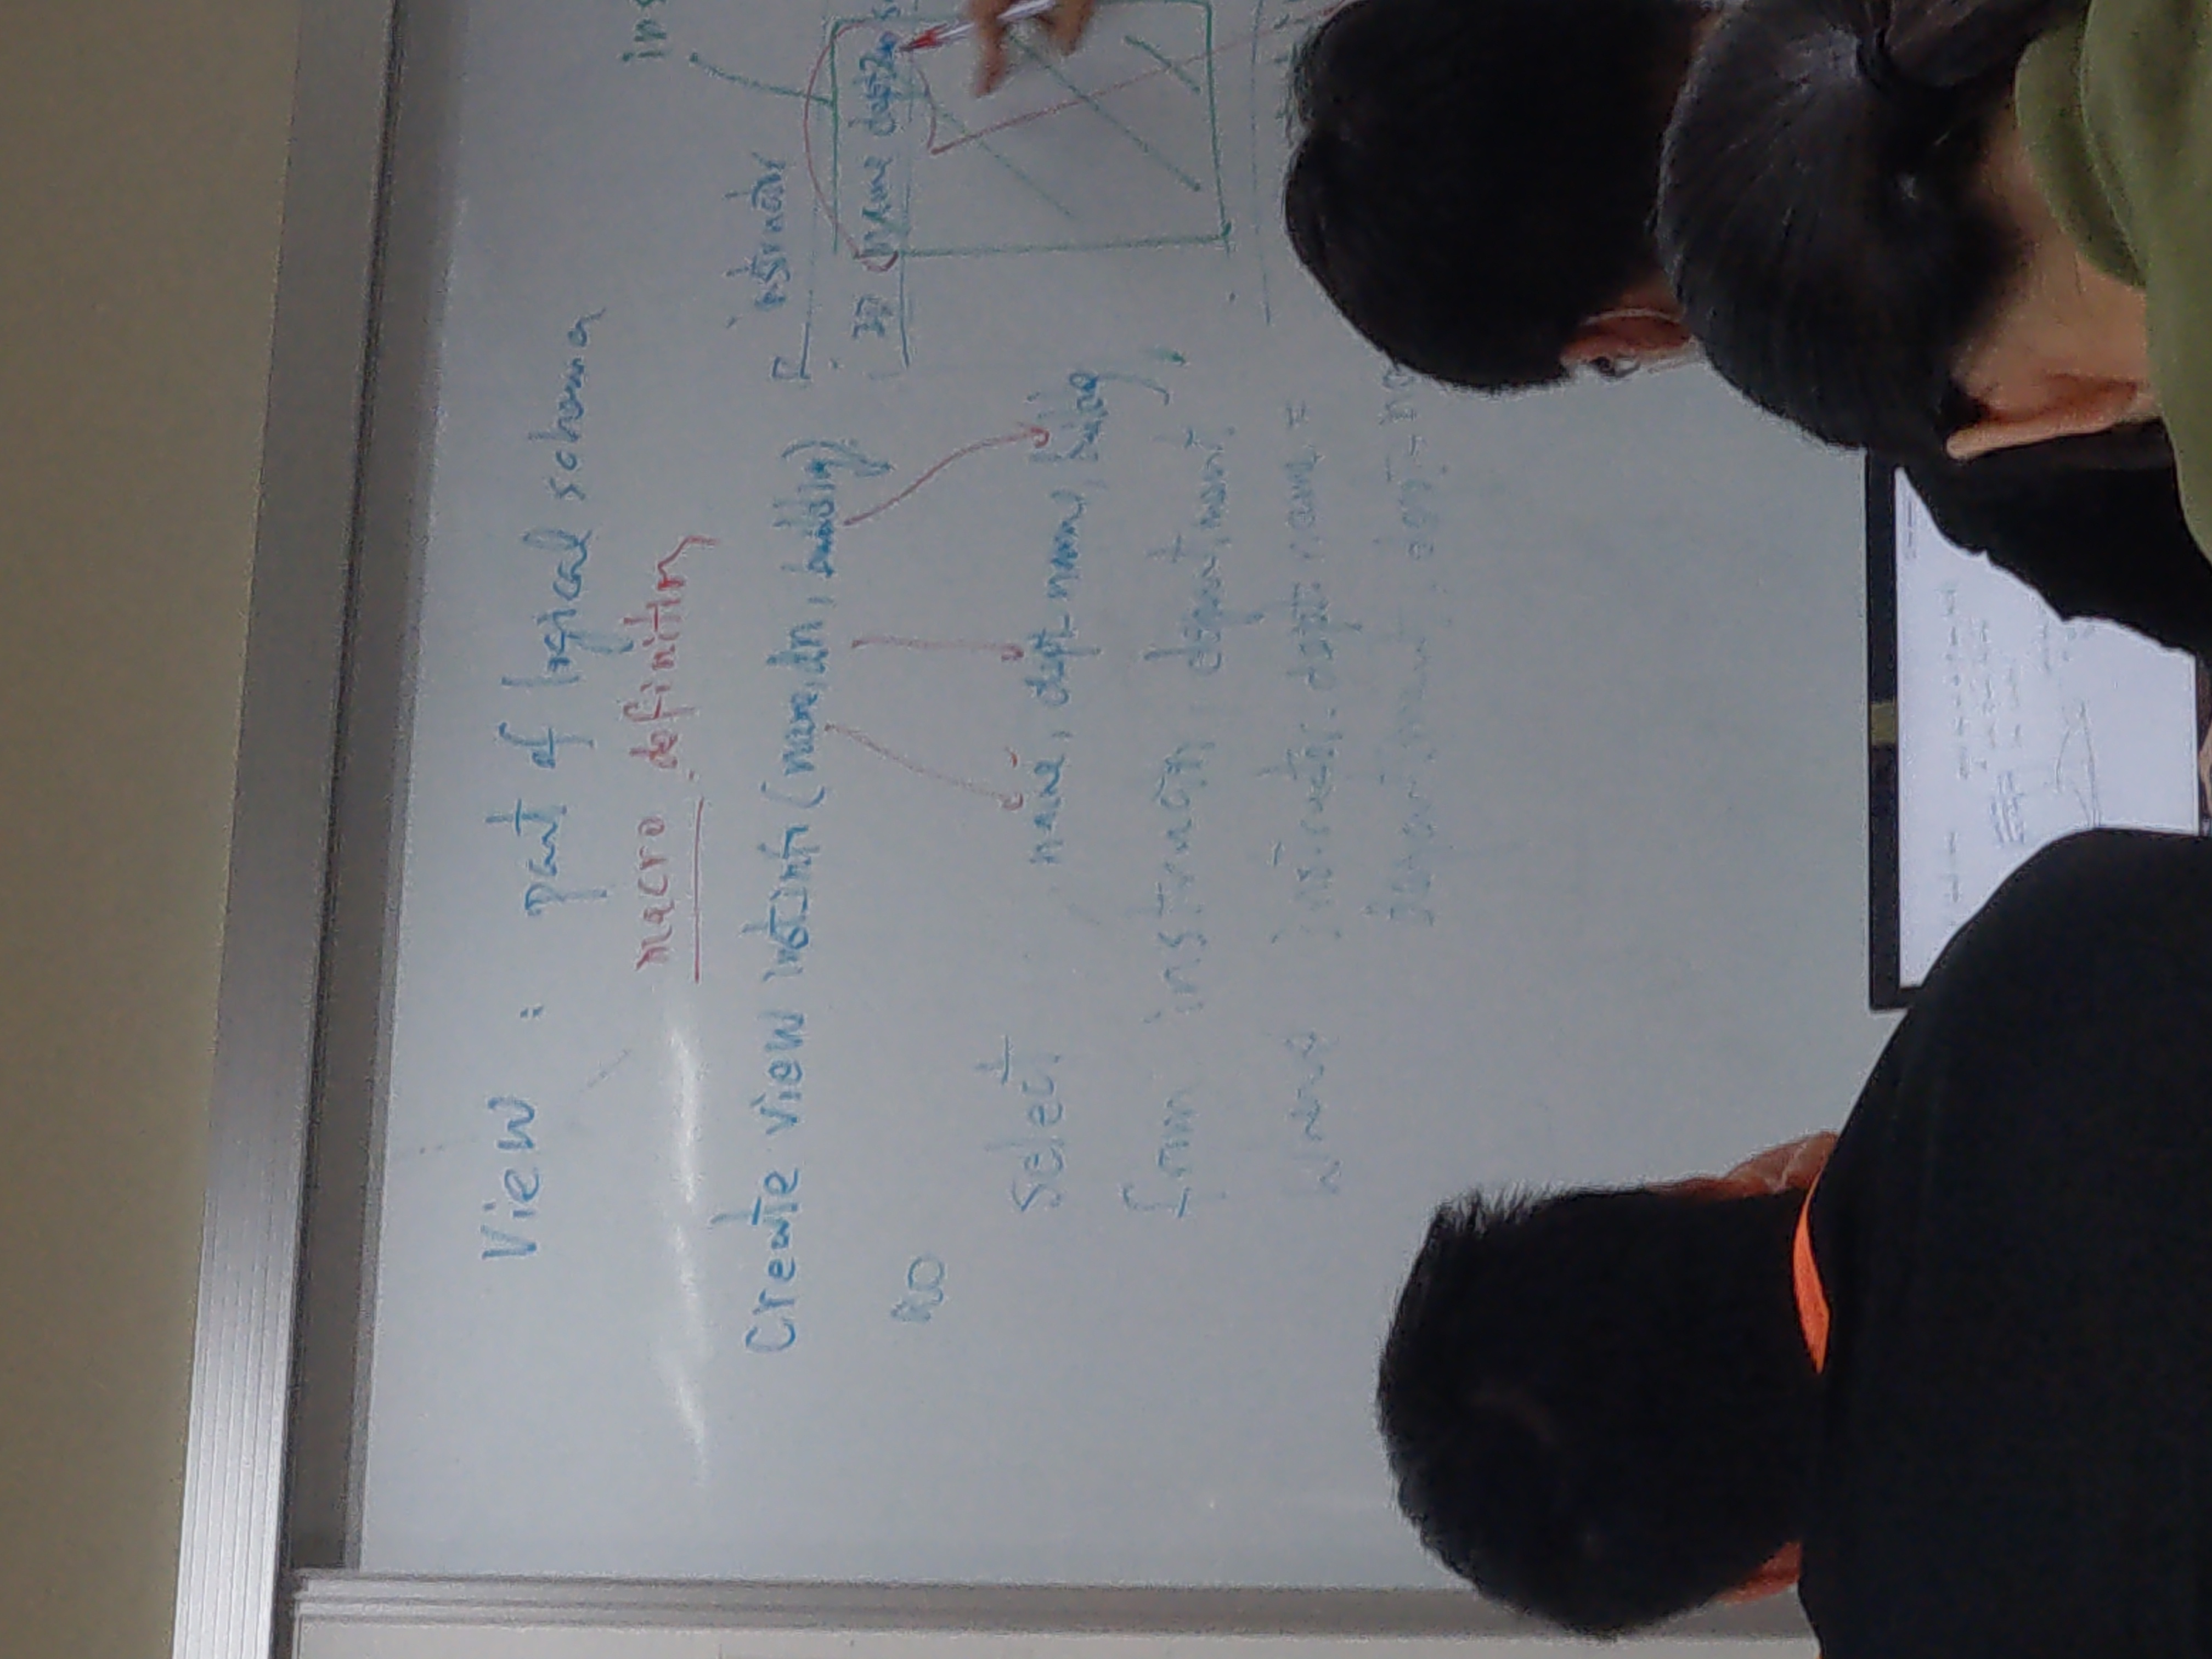 View : part of logical schema
macro definition
Create view inst_info (name, dn, building)
select name, dept_name, building
from instructor, department
where instructor.dept_name =
department.dept_
instructor
ID name dept_